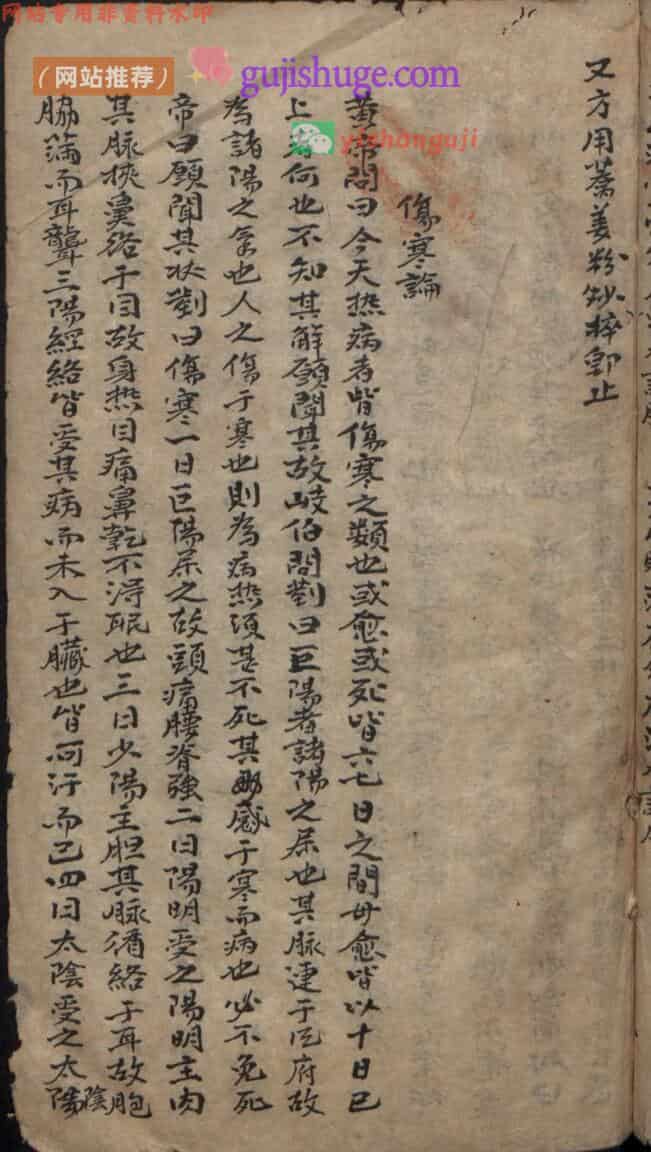 网站专用非资料水印
（网站推荐）
gujishuge.com
yishanguji
又方用蒿姜粉炒擦即止
傷寒論
黄帝問曰今天热病者皆傷寒之類也或愈或死皆六七日之間毋愈皆以十日已
上者何也不知其解願聞其故岐伯問對曰巨陽者諸陽之屬也其脉連于風府故
為諸陽之氣也人之傷于寒也則為病热須甚不死其两感于寒而病也必不免死
帝曰願聞其状對曰傷寒一日巨陽属之故頭痛腰脊強二日陽明受之陽明主肉
其脉挾鼻络于目故身热目痛鼻乾不淂眠也三日少陽主胆其脉循絡于耳故胞
脇滿而耳聾三陽經絡皆受其病而未入于臟也皆可汗而已四日太陰受之太陽陰